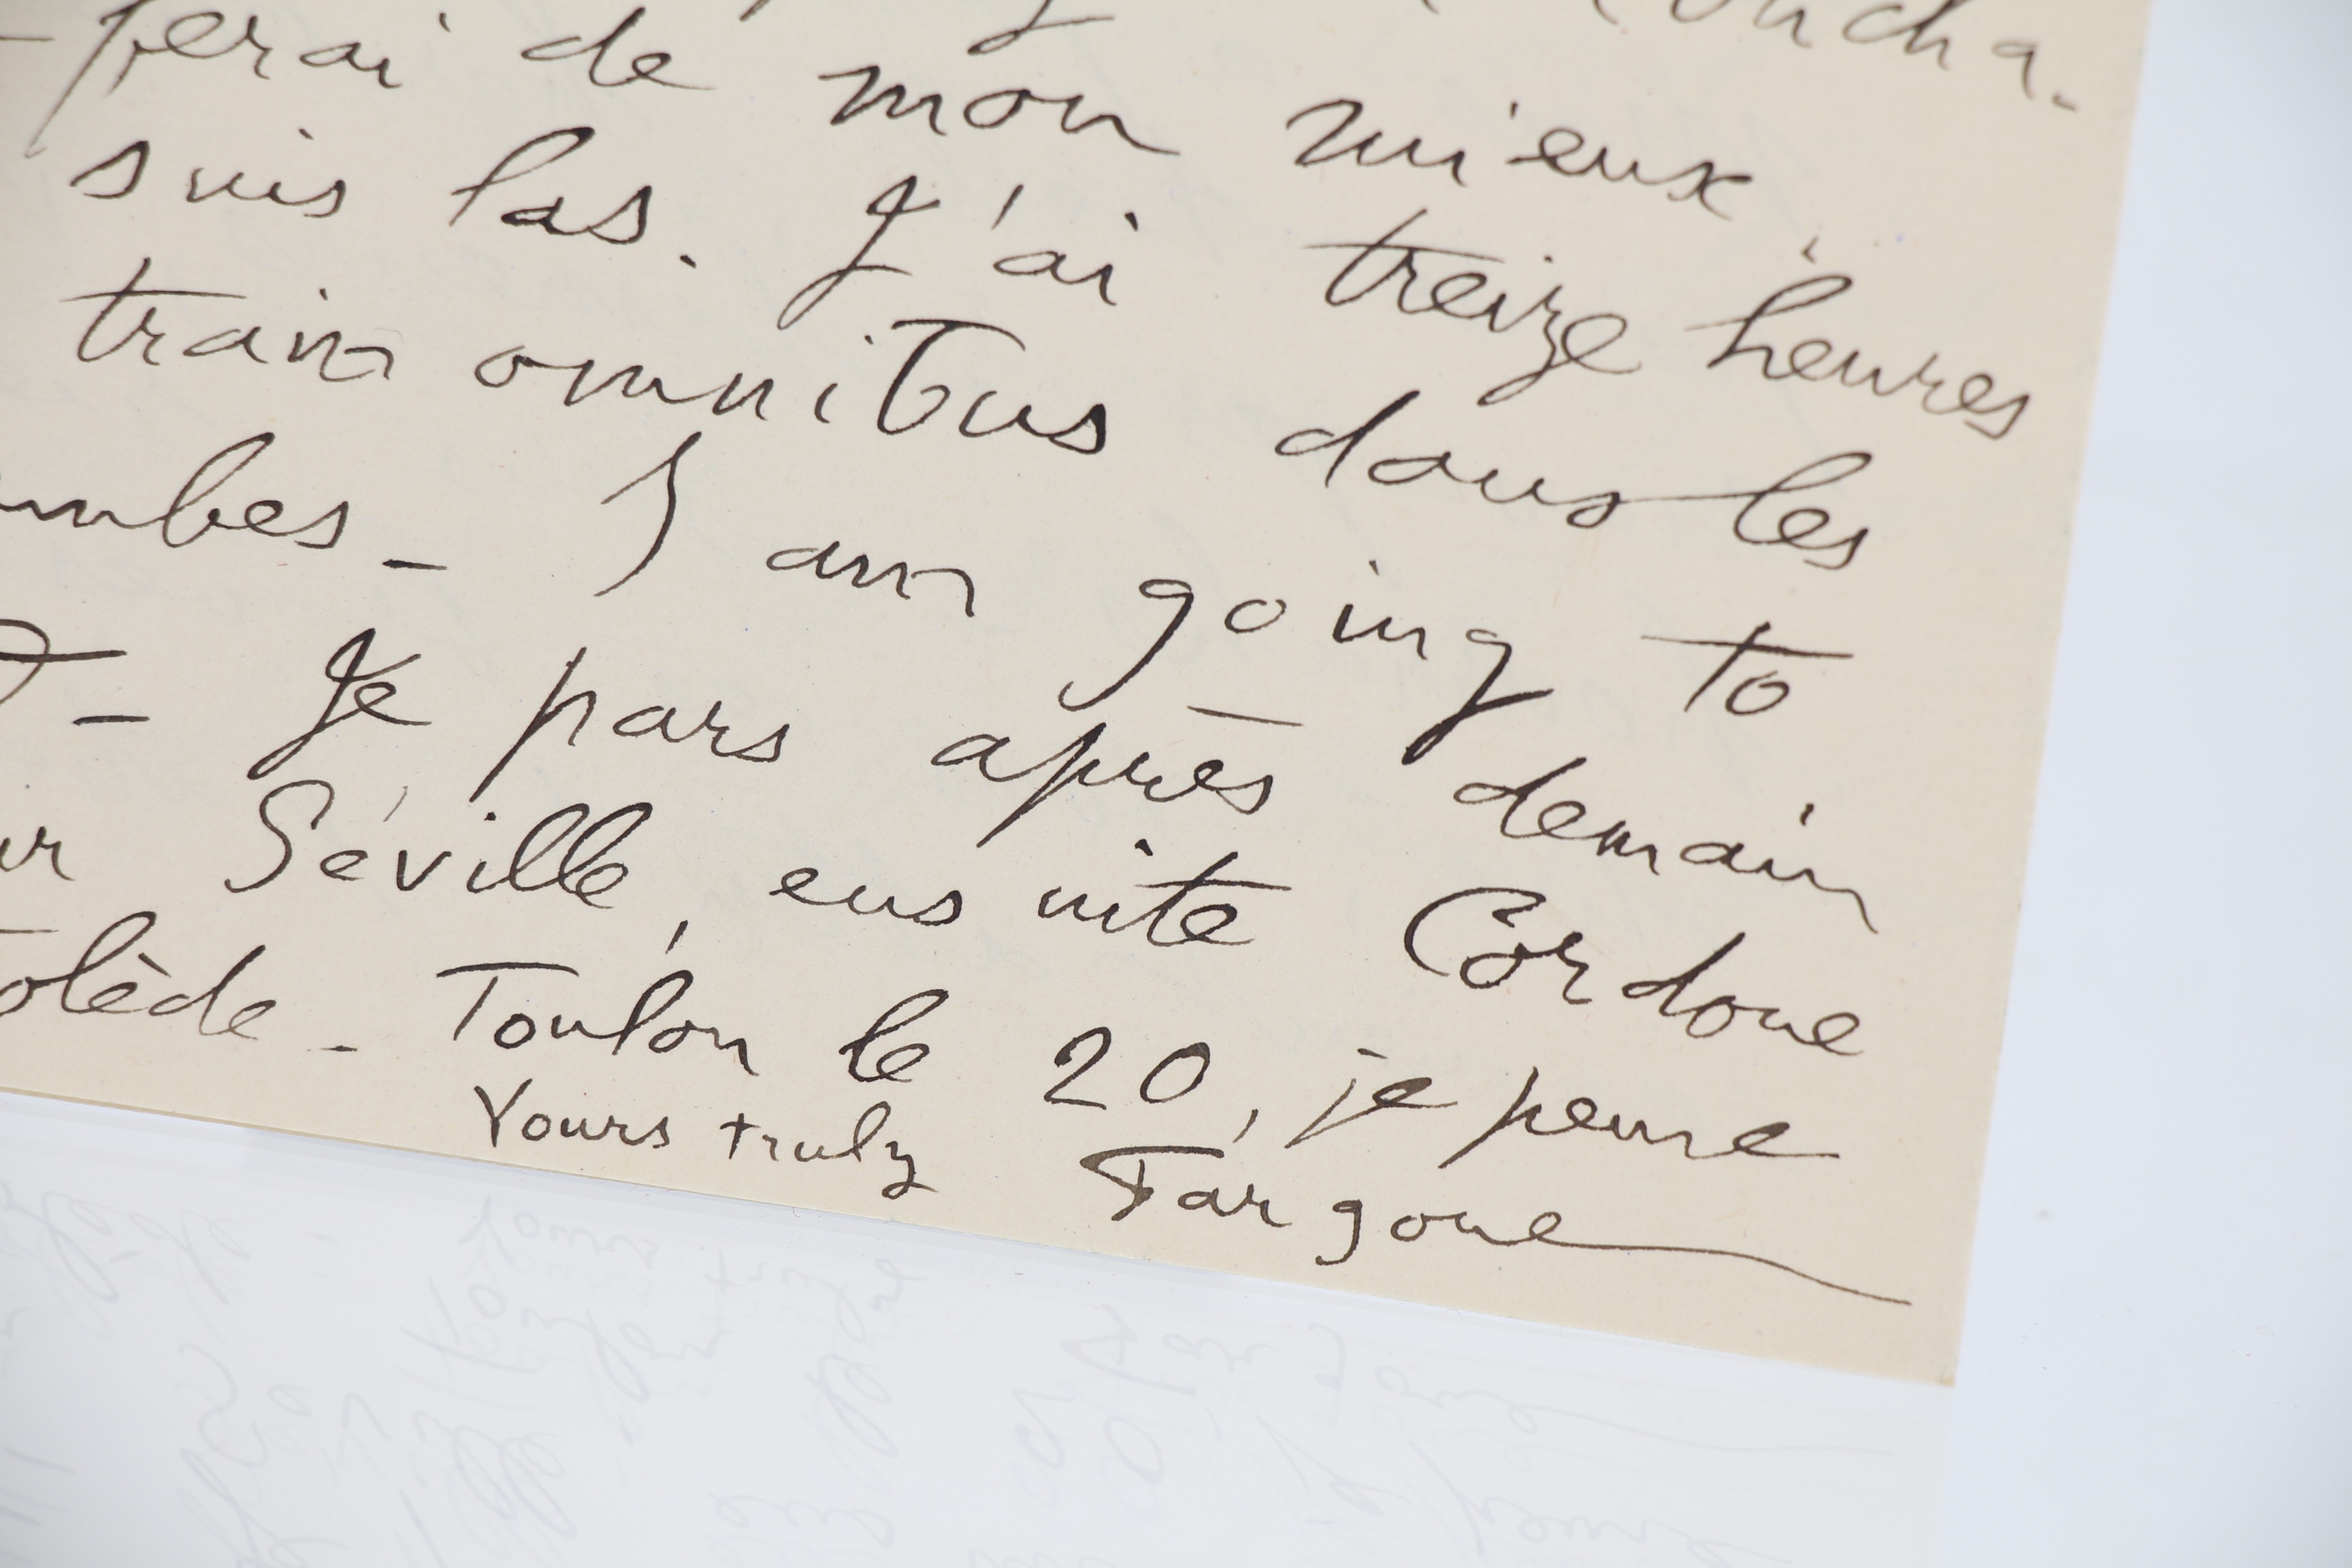 ferai de mon mieux.
suis las. J'ai treize heures
train omnibus dans les
mbes - I am going to
- Je pars après demain
ur Séville, ensuite Cordoue
olède - Toulon le 20, je pense
Yours truly Fargoue